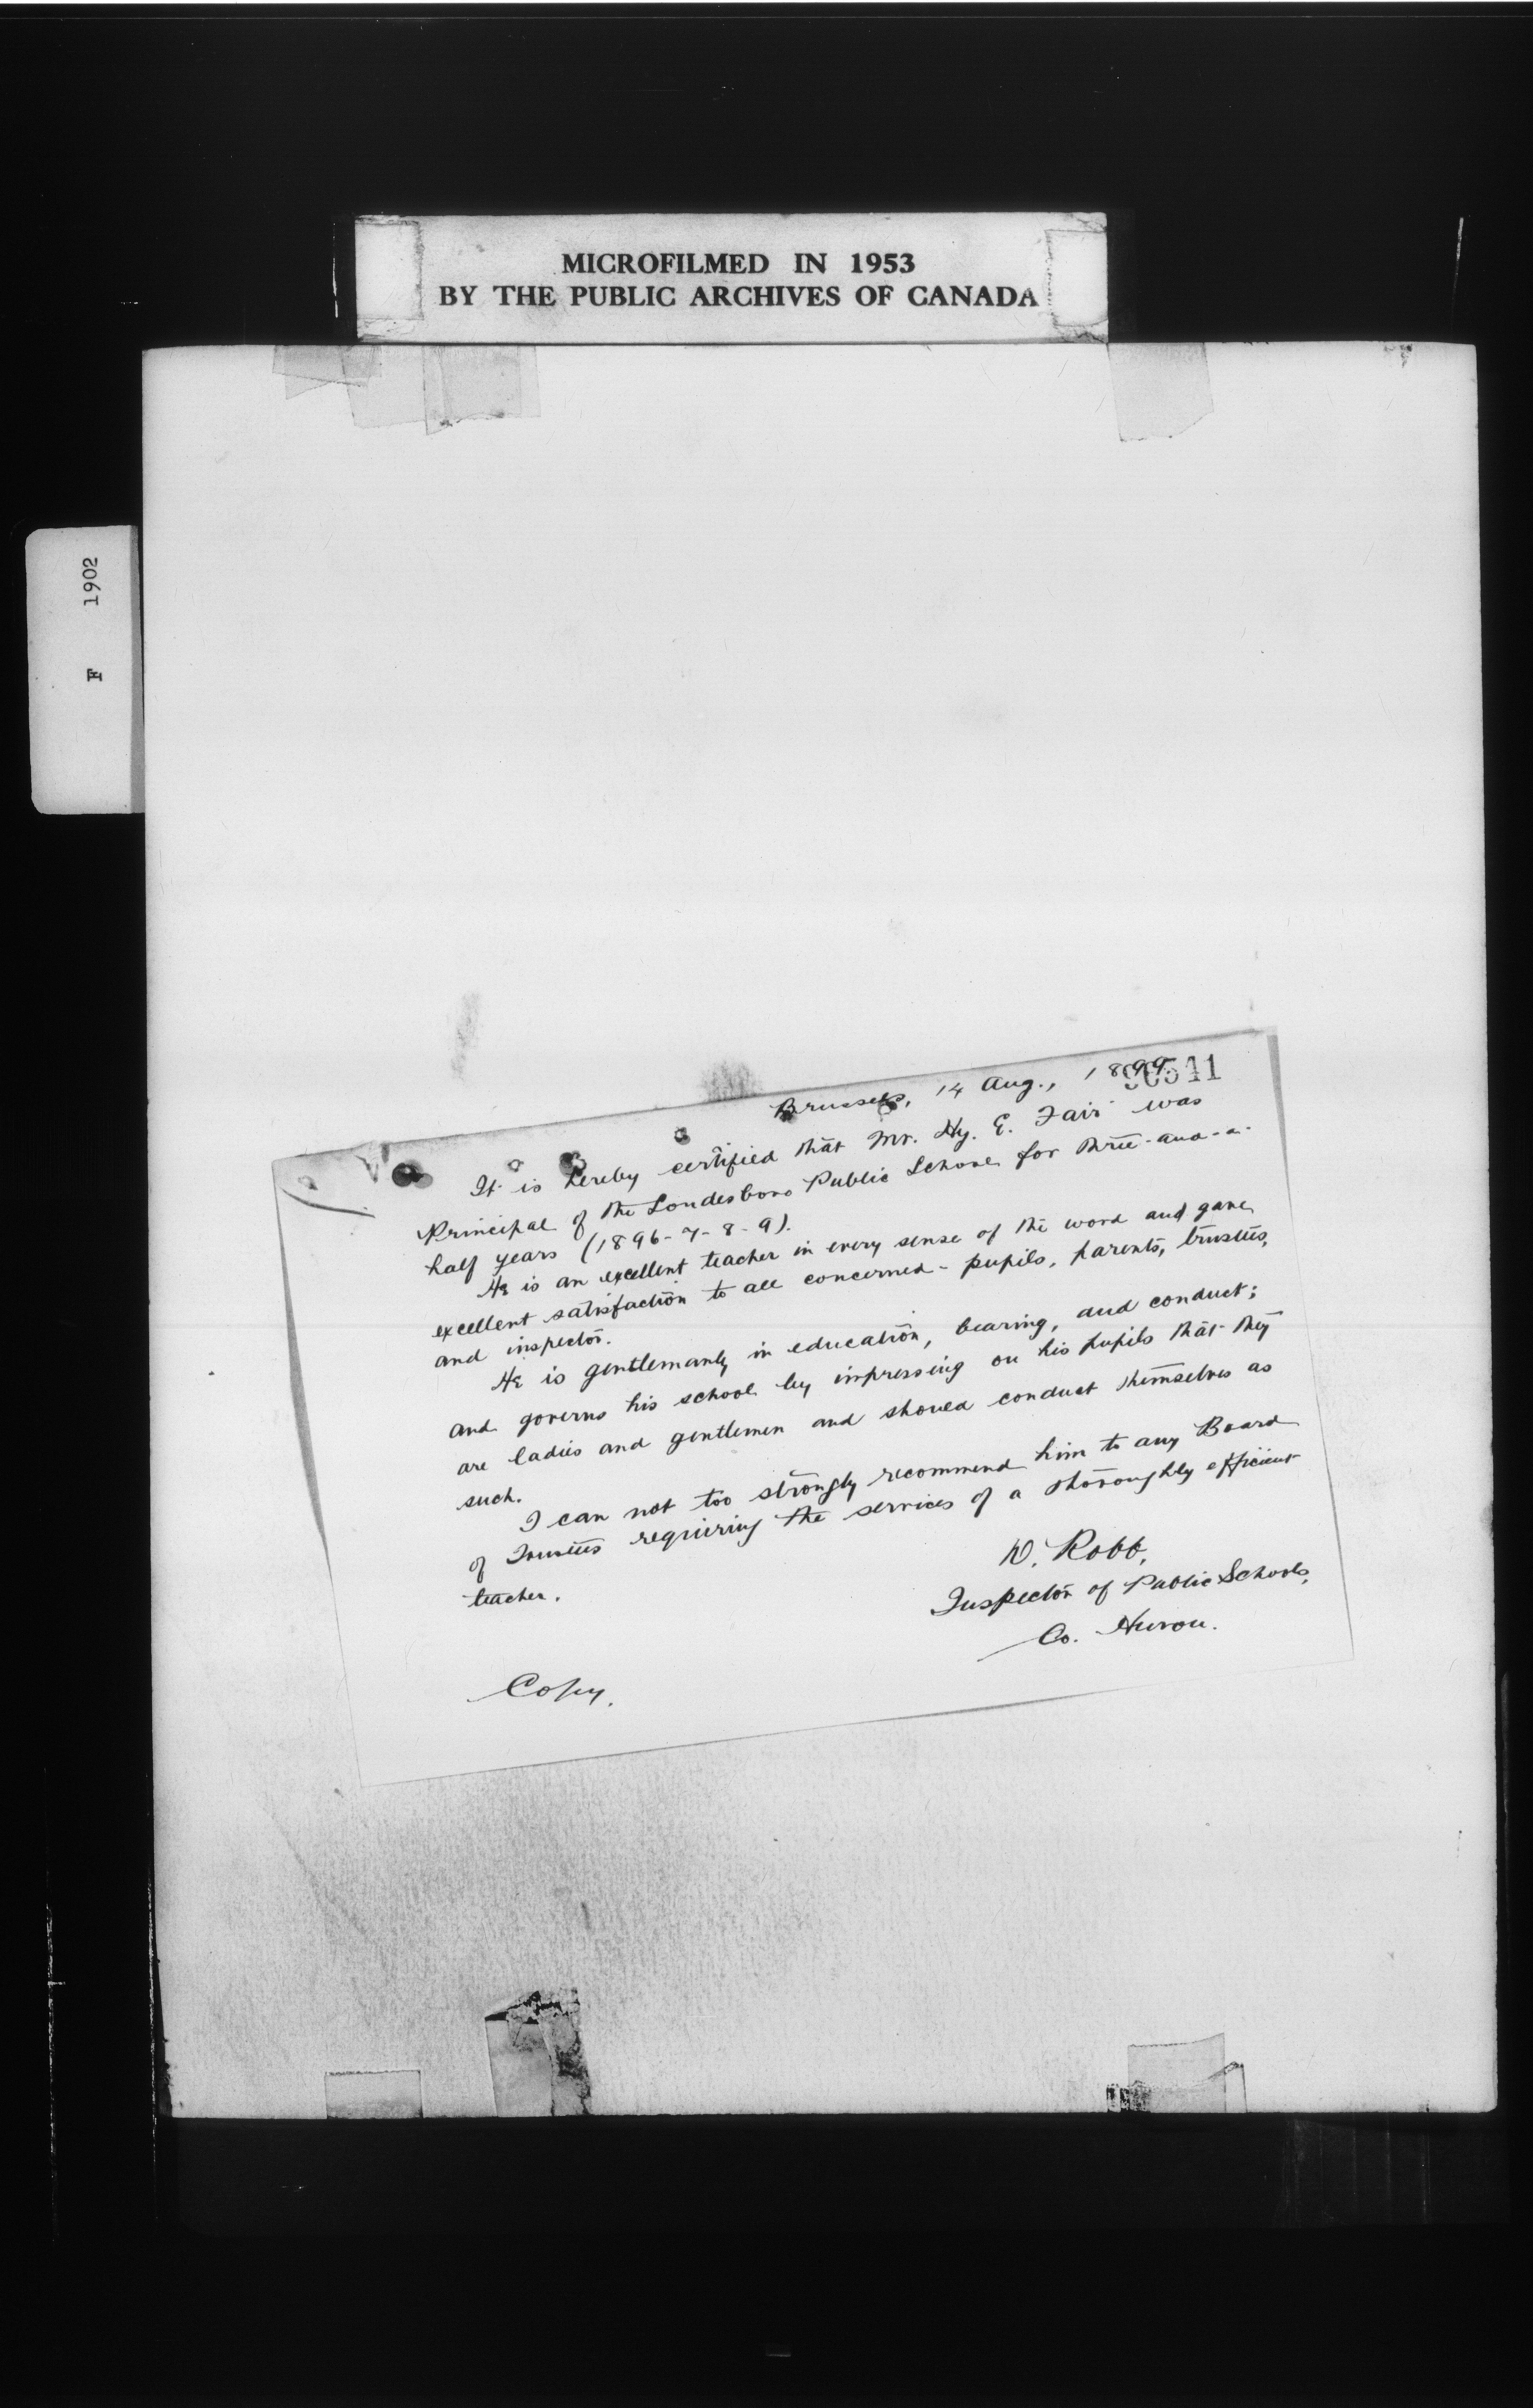 MICROFILMED IN 1953
BY THE PUBLIC ARCHIVES OF CANADA
F 1902
Brussels, 14 Aug., 1899
It is hereby certified that Mr. Hy. E. Fair was
Principal of the Londesboro Public School for three-and-a-
half years (1896-7-8-9).
He is an excellent teacher in every sense of the word and gave
excellent satisfaction to all concerned - pupils, parents, trustees,
and inspector.
He is gentlemanly in education, bearing, and conduct;
and governs his school by impressing on his pupils that they
are ladies and gentlemen and should conduct themselves as
such.
I can not too strongly recommend him to any Board
of Trustees requiring the services of a thoroughly efficient
teacher.
D. Robb,
Inspector of Public Schools,
Co. Huron.
Copy.